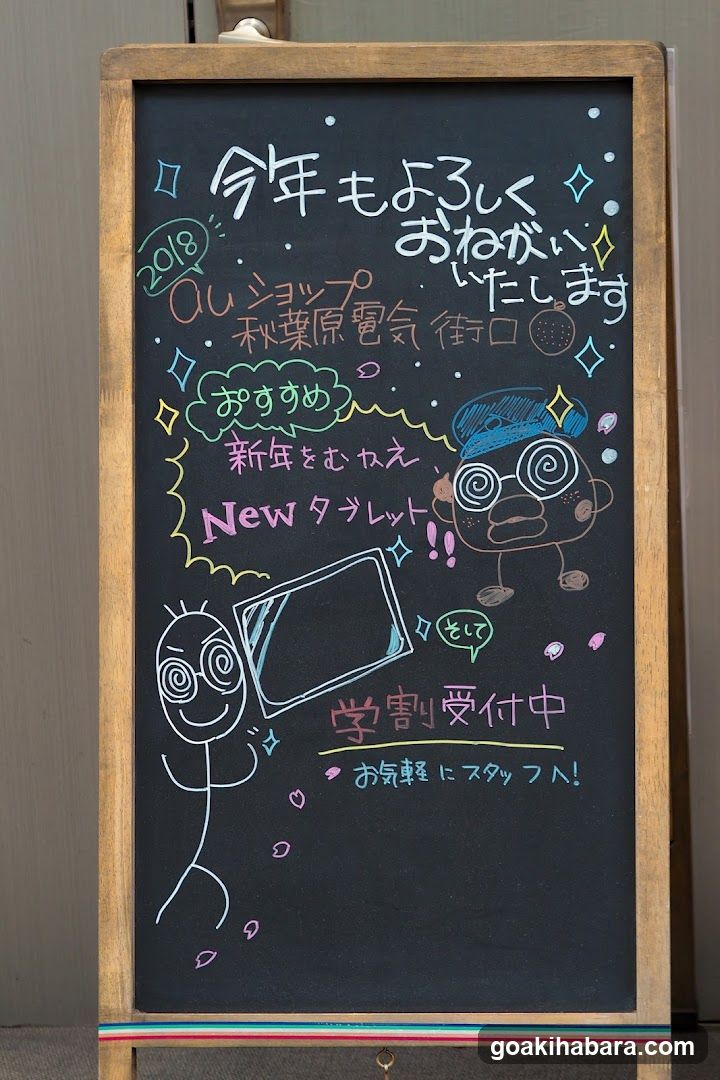 今年もよろしく
おねがい
いたします
2018
auショップ
秋葉原電気街口
おすすめ
新年をむかえ
Newタブレット!!
そして
学割受付中
お気軽にスタッフへ!
goakihabara.com